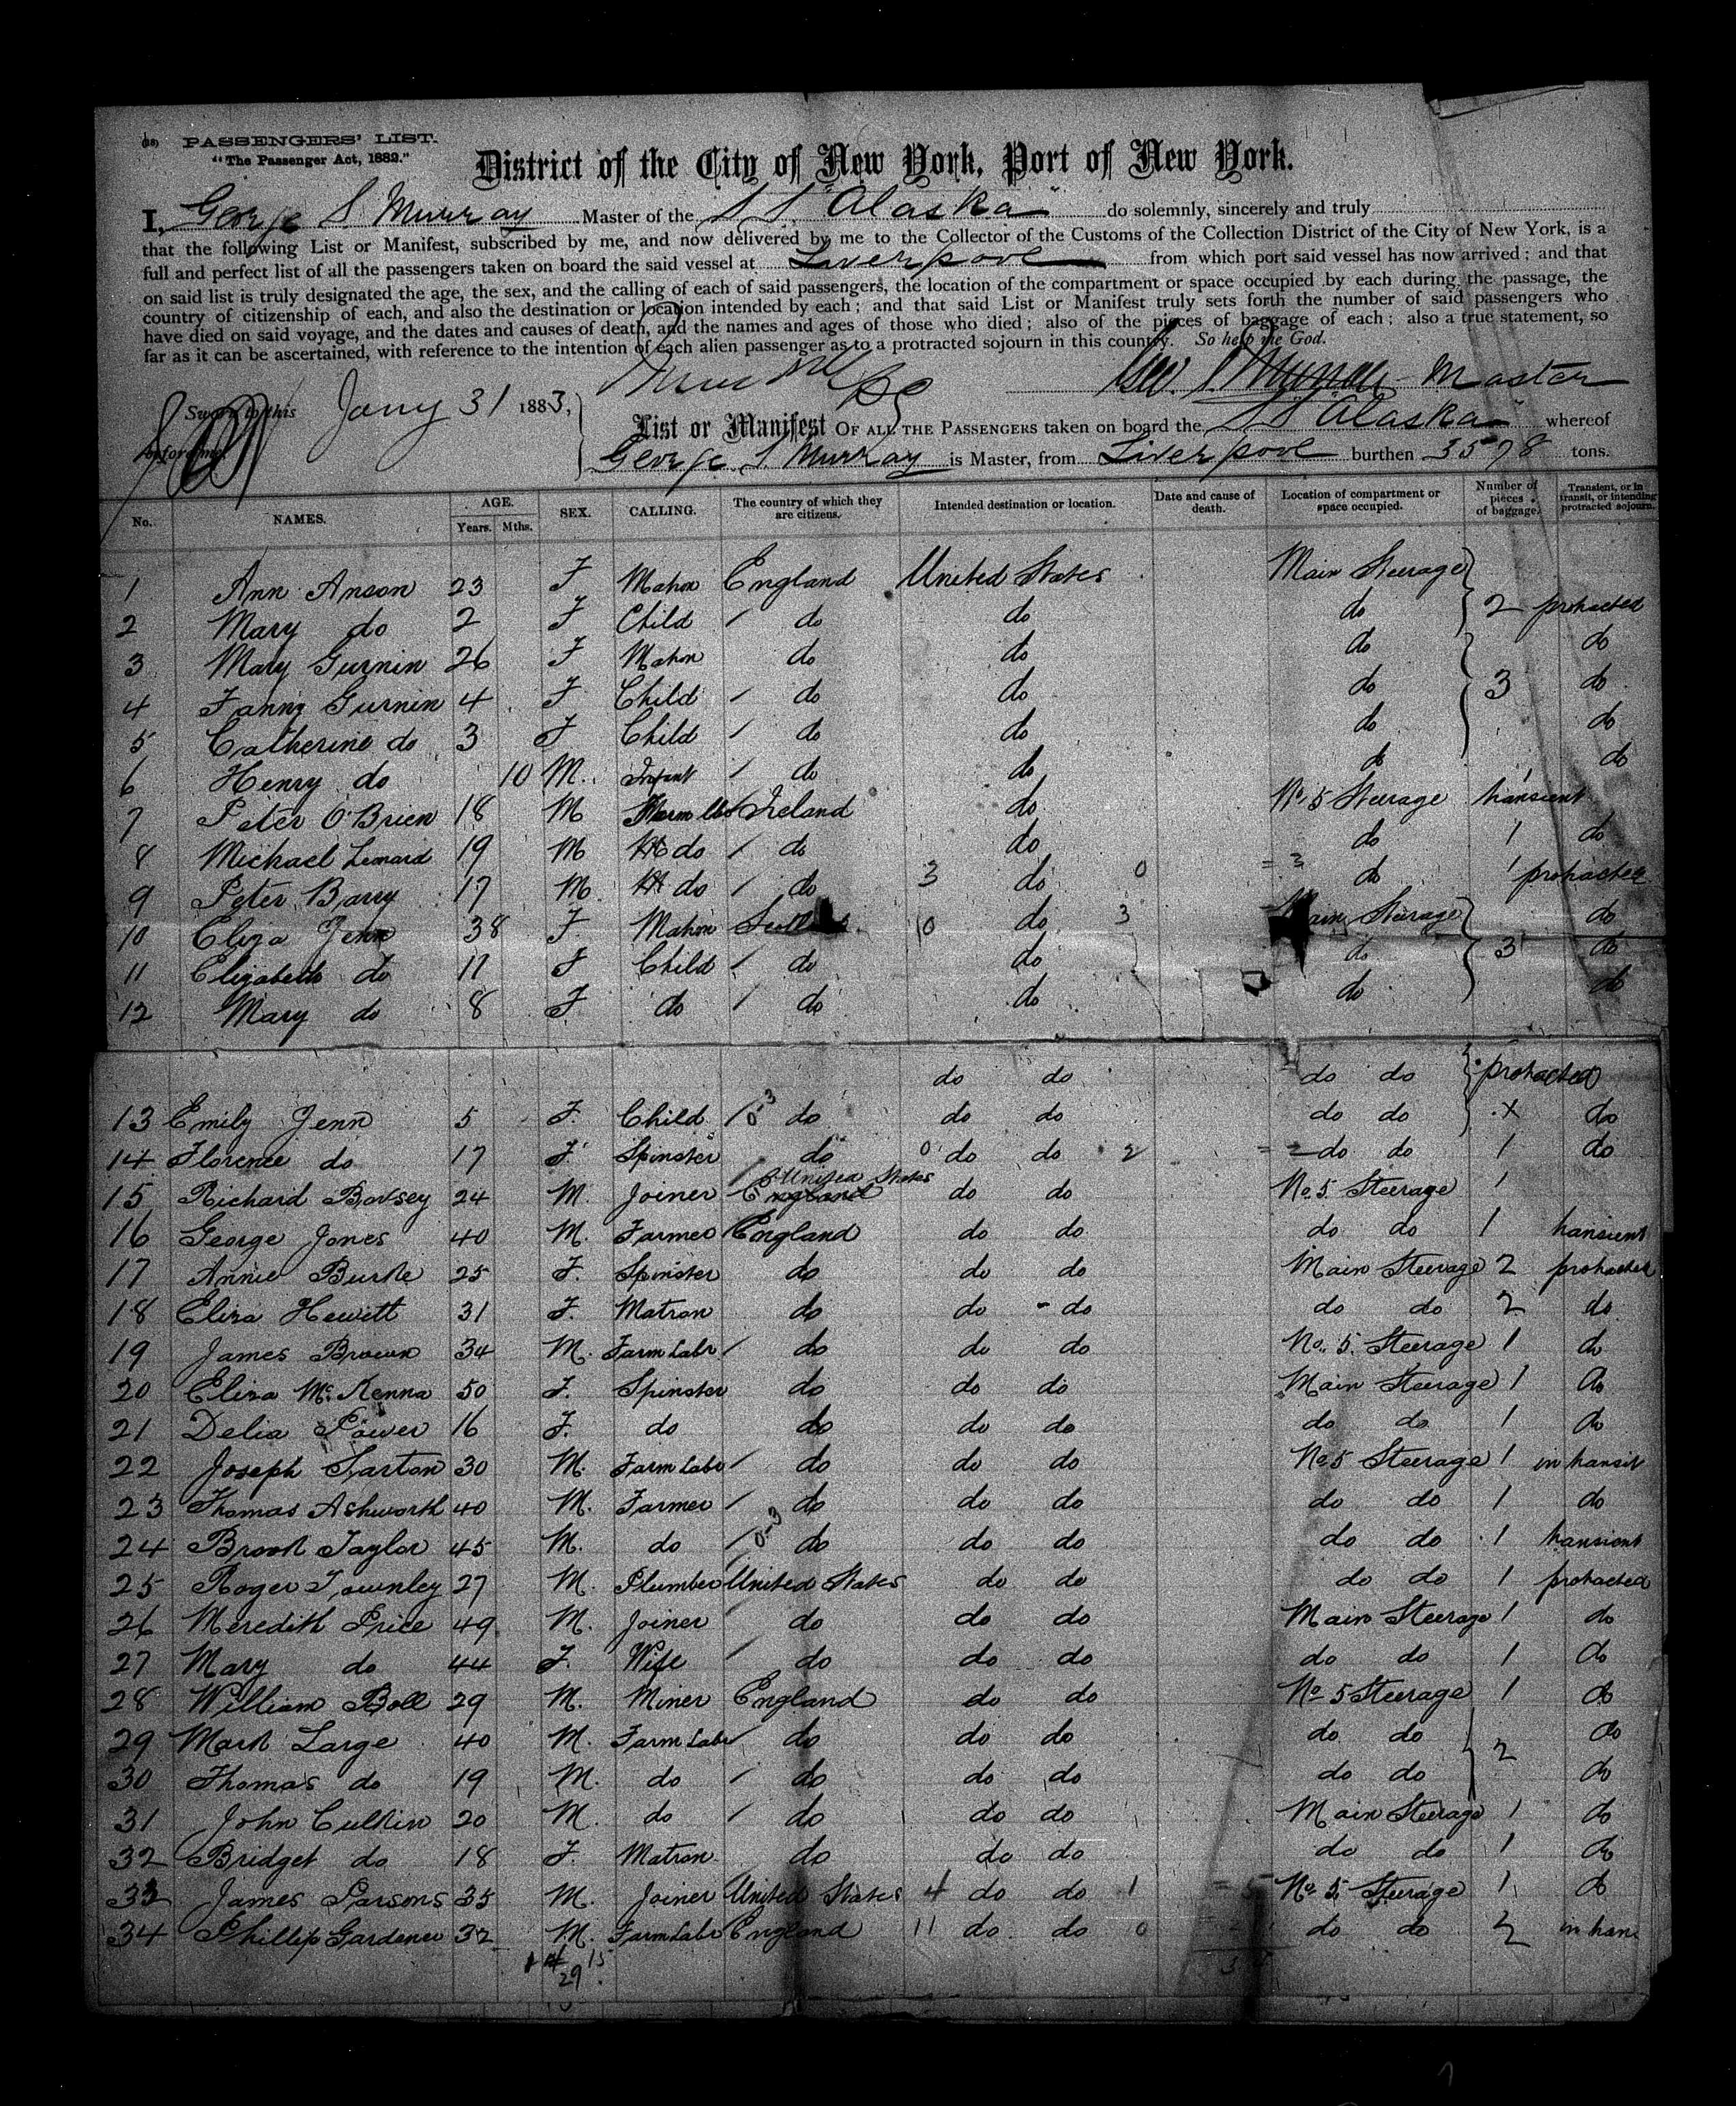 (18) PASSENGERS' LIST.
"The Passenger Act, 1882."
District of the City of New York, Port of New York.
I, George S. Murray Master of the S.S. "Alaska" do solemnly, sincerely and truly
that the following List or Manifest, subscribed by me, and now delivered by me to the Collector of the Customs of the Collection District of the City of New York, is a
full and perfect list of all the passengers taken on board the said vessel at Liverpool from which port said vessel has now arrived; and that
on said list is truly designated the age, the sex, and the calling of each of said passengers, the location of the compartment or space occupied by each during the passage, the
country of citizenship of each, and also the destination or location intended by each; and that said List or Manifest truly sets forth the number of said passengers who
have died on said voyage, and the dates and causes of death, and the names and ages of those who died; also of the pieces of baggage of each; also a true statement, so
far as it can be ascertained, with reference to the intention of each alien passenger as to a protracted sojourn in this country. So help me God.
Geo. S Murray Master
Sworn to this Jany 31 1883,
before me
List or Manifest OF ALL THE PASSENGERS taken on board the SS "Alaska" whereof
George S. Murray is Master, from Liverpool burthen 3578 tons.
No. NAMES. AGE. Years. Mths. SEX. CALLING. The country of which they are citizens. Intended destination or location. Date and cause of death. Location of compartment or space occupied. Number of pieces of baggage. Transient, or in transit, or intending protracted sojourn.
1 Ann Anson 23 F Matron England United States Main Steerage
2 Mary do 2 F Child / do do do 2 protracted
3 Mary Gurnin 26 F Matron do do do do
4 Fanny Gurnin 4 F Child / do do do 3 do
5 Catherine do 3 F Child / do do do do
6 Henry do 10 M. Infant / do do do do
7 Peter O'Brien 18 M Farm lbr Ireland do No 5 Steerage 1 transient
8 Michael Lennard 19 M do / do do do 1 do
9 Peter Barry 17 M. do / do 3 do 0 = 3 do 1 protracted
10 Eliza Jenn 38 F. Matron 10 do 3 Main Steerage do
11 Elizabeth do 11 F Child / do do do 3 do
12 Mary do 8 F do / do do do do
do do do do protracted
13 Emily Jenn 5 F. Child / 0-3 do do do do do x do
14 Florence do 17 F. Spinster do 0 do do 2 = 2 do do 1 do
15 Richard Bovsey 24 M. Joiner England United States do do No. 5 Steerage 1
16 George Jones 40 M. Farmer England do do do do 1 transient
17 Annie Burke 25 F. Spinster do do do Main Steerage 2 protracted
18 Eliza Hewitt 31 F. Matron do do - do do do 2 do
19 James Brown 34 M. Farm Labr / do do do No. 5. Steerage 1 do
20 Eliza McKenna 50 F. Spinster do do do Main Steerage 1 do
21 Delia Power 16 F. do do do do do do 1 do
22 Joseph Tarton 30 M. Farm Labr / do do do No 5 Steerage 1 in transit
23 Thomas Ashworth 40 M. Farmer / do do do do do 1 do
24 Brook Taylor 45 M. do / 0-3 do do do do do 1 transient
25 Roger Townley 27 M. Plumber United States do do do do 1 protracted
26 Meredith Price 49 M. Joiner / do do do Main Steerage 1 do
27 Mary do 44 F. Wife / do do do do do 1 do
28 William Boll 29 M. Miner England do do No 5 Steerage 1 do
29 Mark Large 40 M. Farm Labr / do do do do do do
30 Thomas do 19 M. do / do do do do do 2 do
31 John Culkin 20 M. do / do do do Main Steerage 1 do
32 Bridget do 18 F. Matron do do do do do 1 do
33 James Parsons 35 M. Joiner United States 4 do do 1 = 5 No. 5 Steerage 1 do
34 Phillip Gardener 32 M. Farm Labr England 11 do do 0 do do 2 in trans
29 15